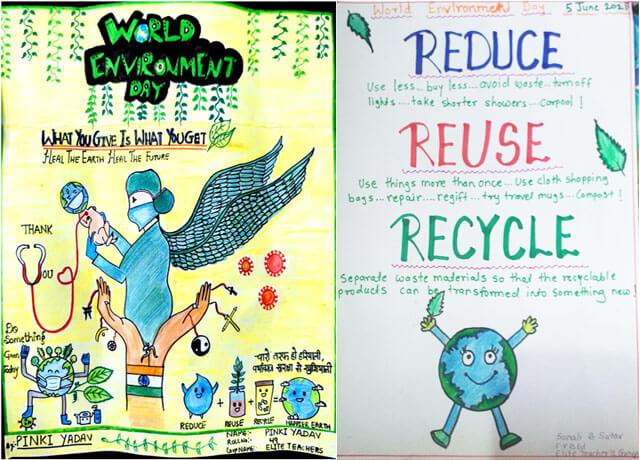 WORLD
ENVIRONMENT
DAY
WHAT YOU GIVE IS WHAT YOU GET
HEAL THE EARTH HEAL THE FUTURE
THANK
YOU
Do
Something
Green
Today
चारो तरफ हो हरियाली,
सुरक्षा से
REDUCE
REUSE
RECYCLE
HAPPIER EARTH
NAME:- PINKI YADAV
ROLL No:- 49
NAME: ELITE TEACHERS
By: PINKI YADAV
World Environmen Day 5 June
REDUCE
Use less...buy less...avoid waste...turn off
lights....take shorter showers....Carpool !
REUSE
Use things more than once...Use cloth shopping
bags...repair....regift...try travel mugs...compost !
RECYCLE
Separate waste materials so that the recyclable
products can be transformed into something new
Sonali B
Elite Teacher's